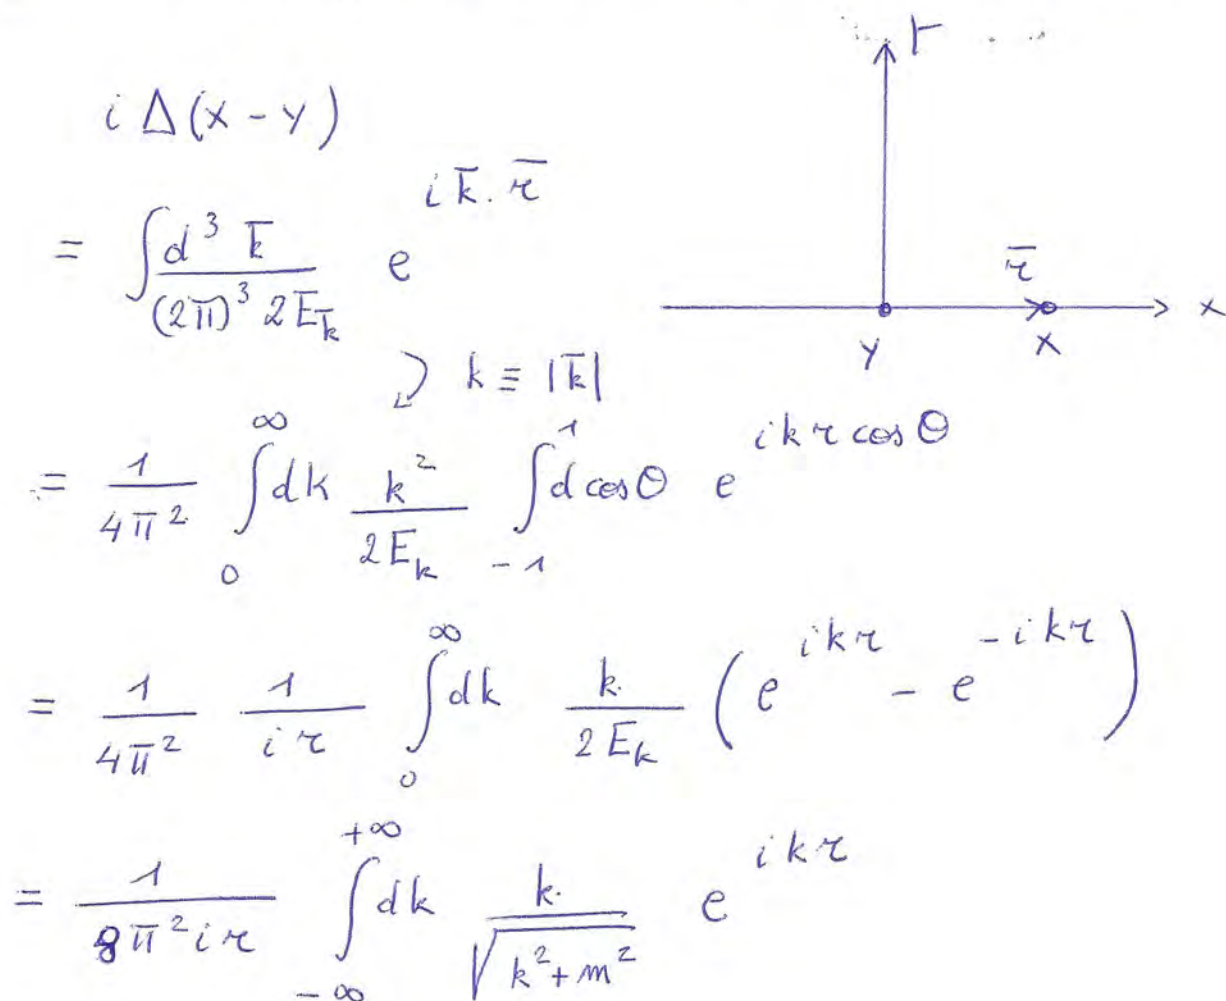 i Δ(x - y)
= ∫ d³k̄ / ((2π)³ 2E_k̄) e^{i k̄ . r̄}
k ≡ |k̄|
= 1/(4π²) ∫_0^∞ dk k²/(2E_k) ∫_{-1}^{1} d cosθ e^{i k r cosθ}
= 1/(4π²) 1/(i r) ∫_0^∞ dk k/(2E_k) (e^{i k r} - e^{-i k r})
= 1/(8π² i r) ∫_{-∞}^{+∞} dk k/√(k² + m²) e^{i k r}
r̄
x
y
x